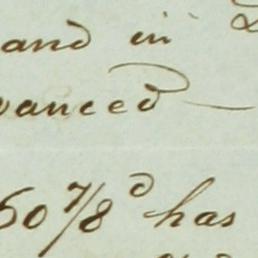 and in
vanced —
50 7/8 d has